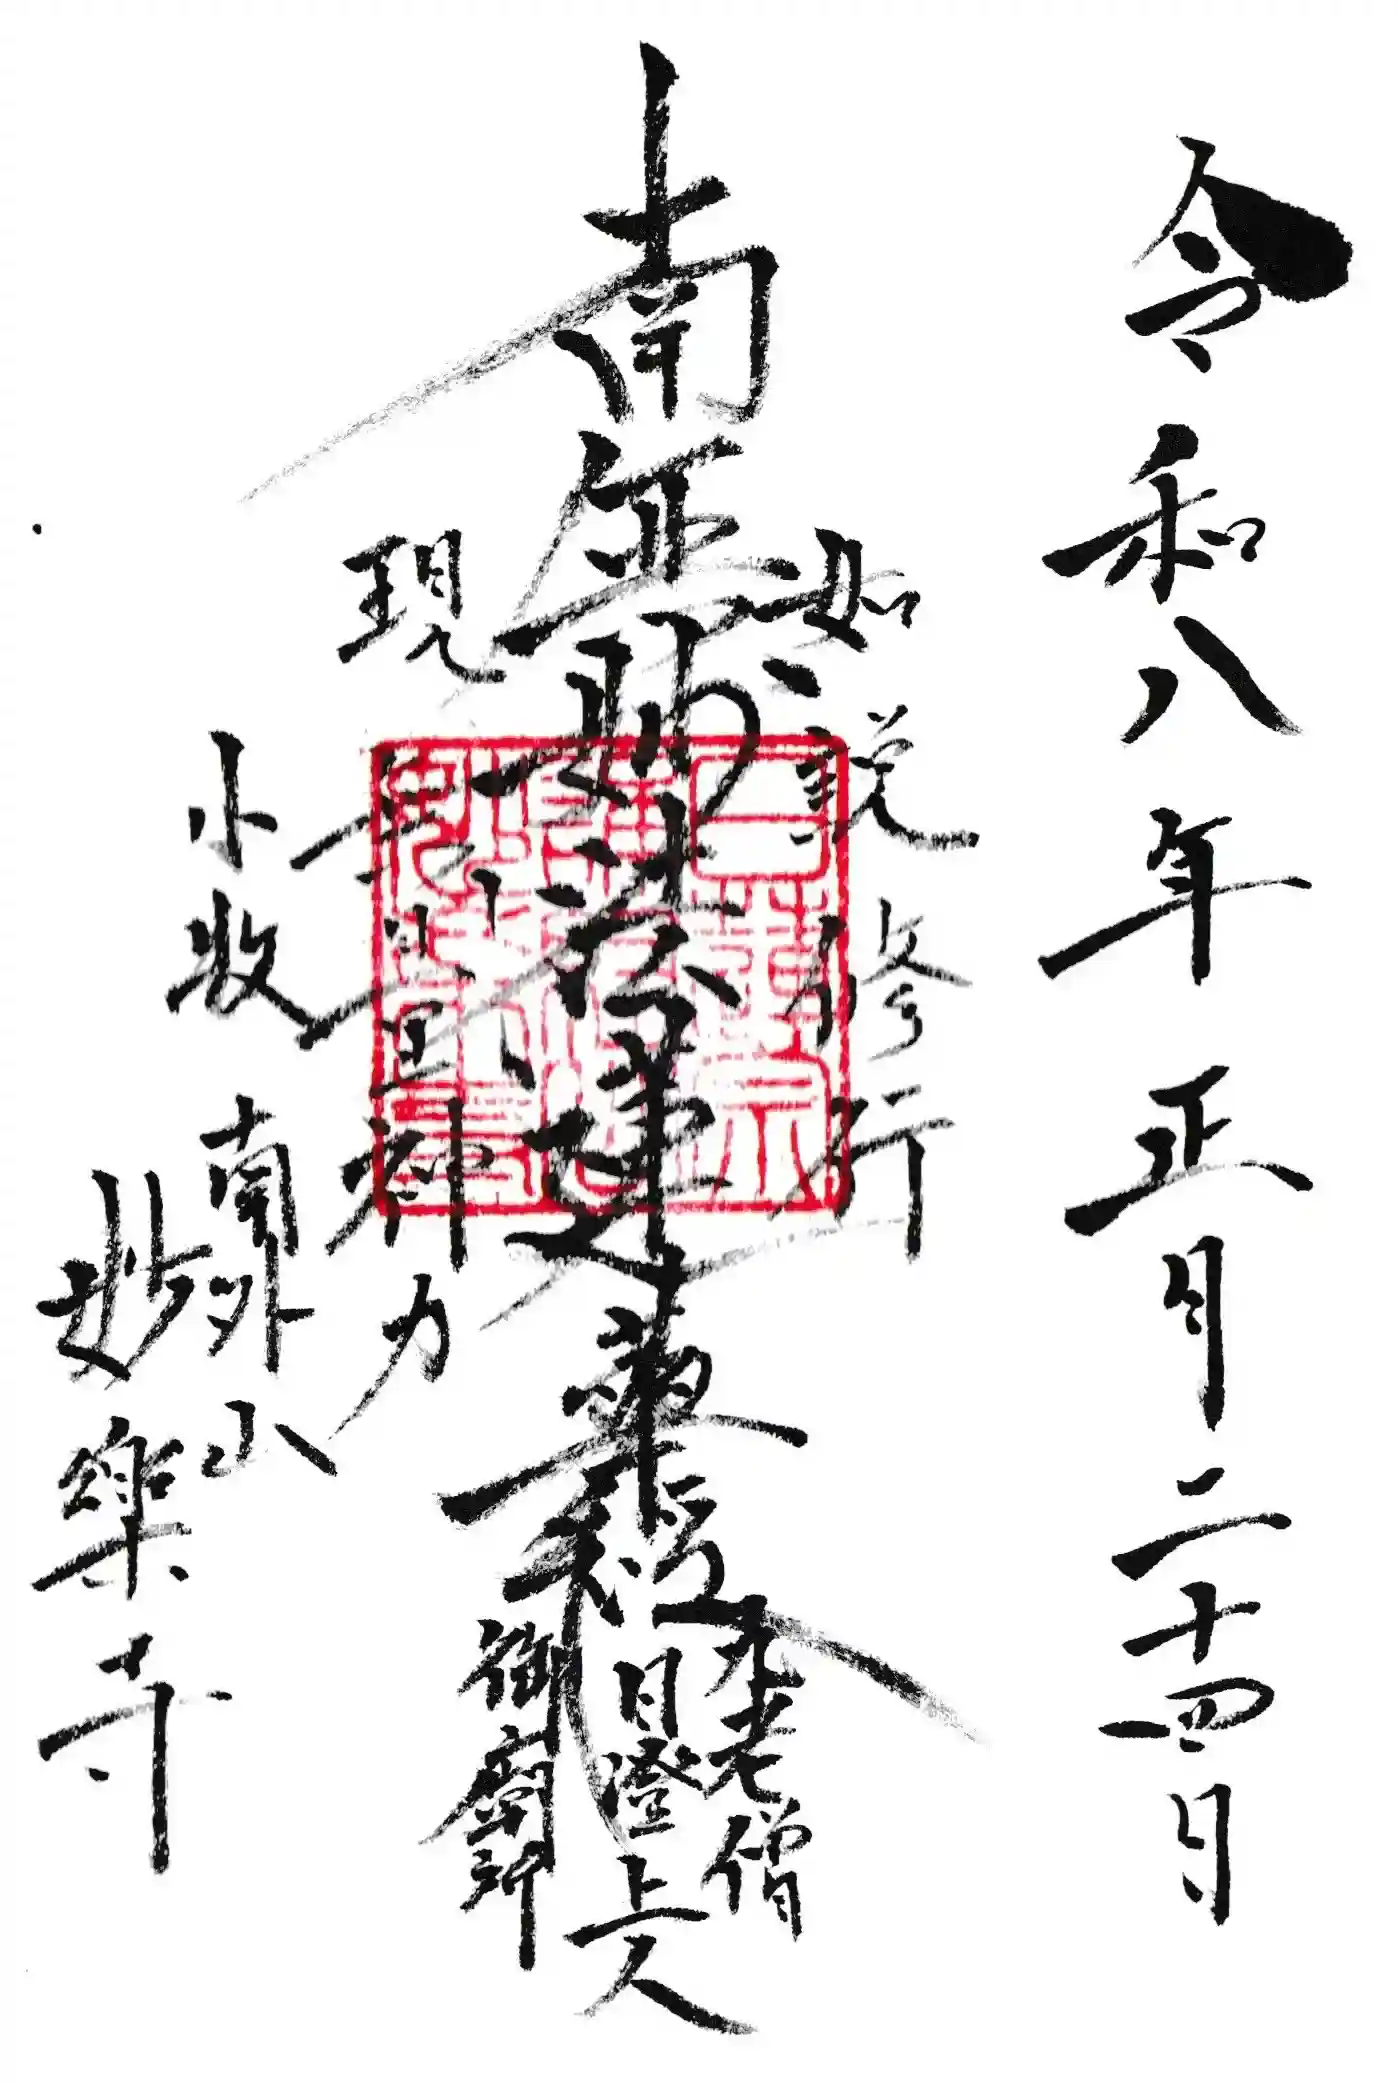 令和八年正月二十四日
如説修行
南無妙法蓮華経
九老僧
日澄上人
御廟所
現無量神力
小牧
南外山
妙樂寺